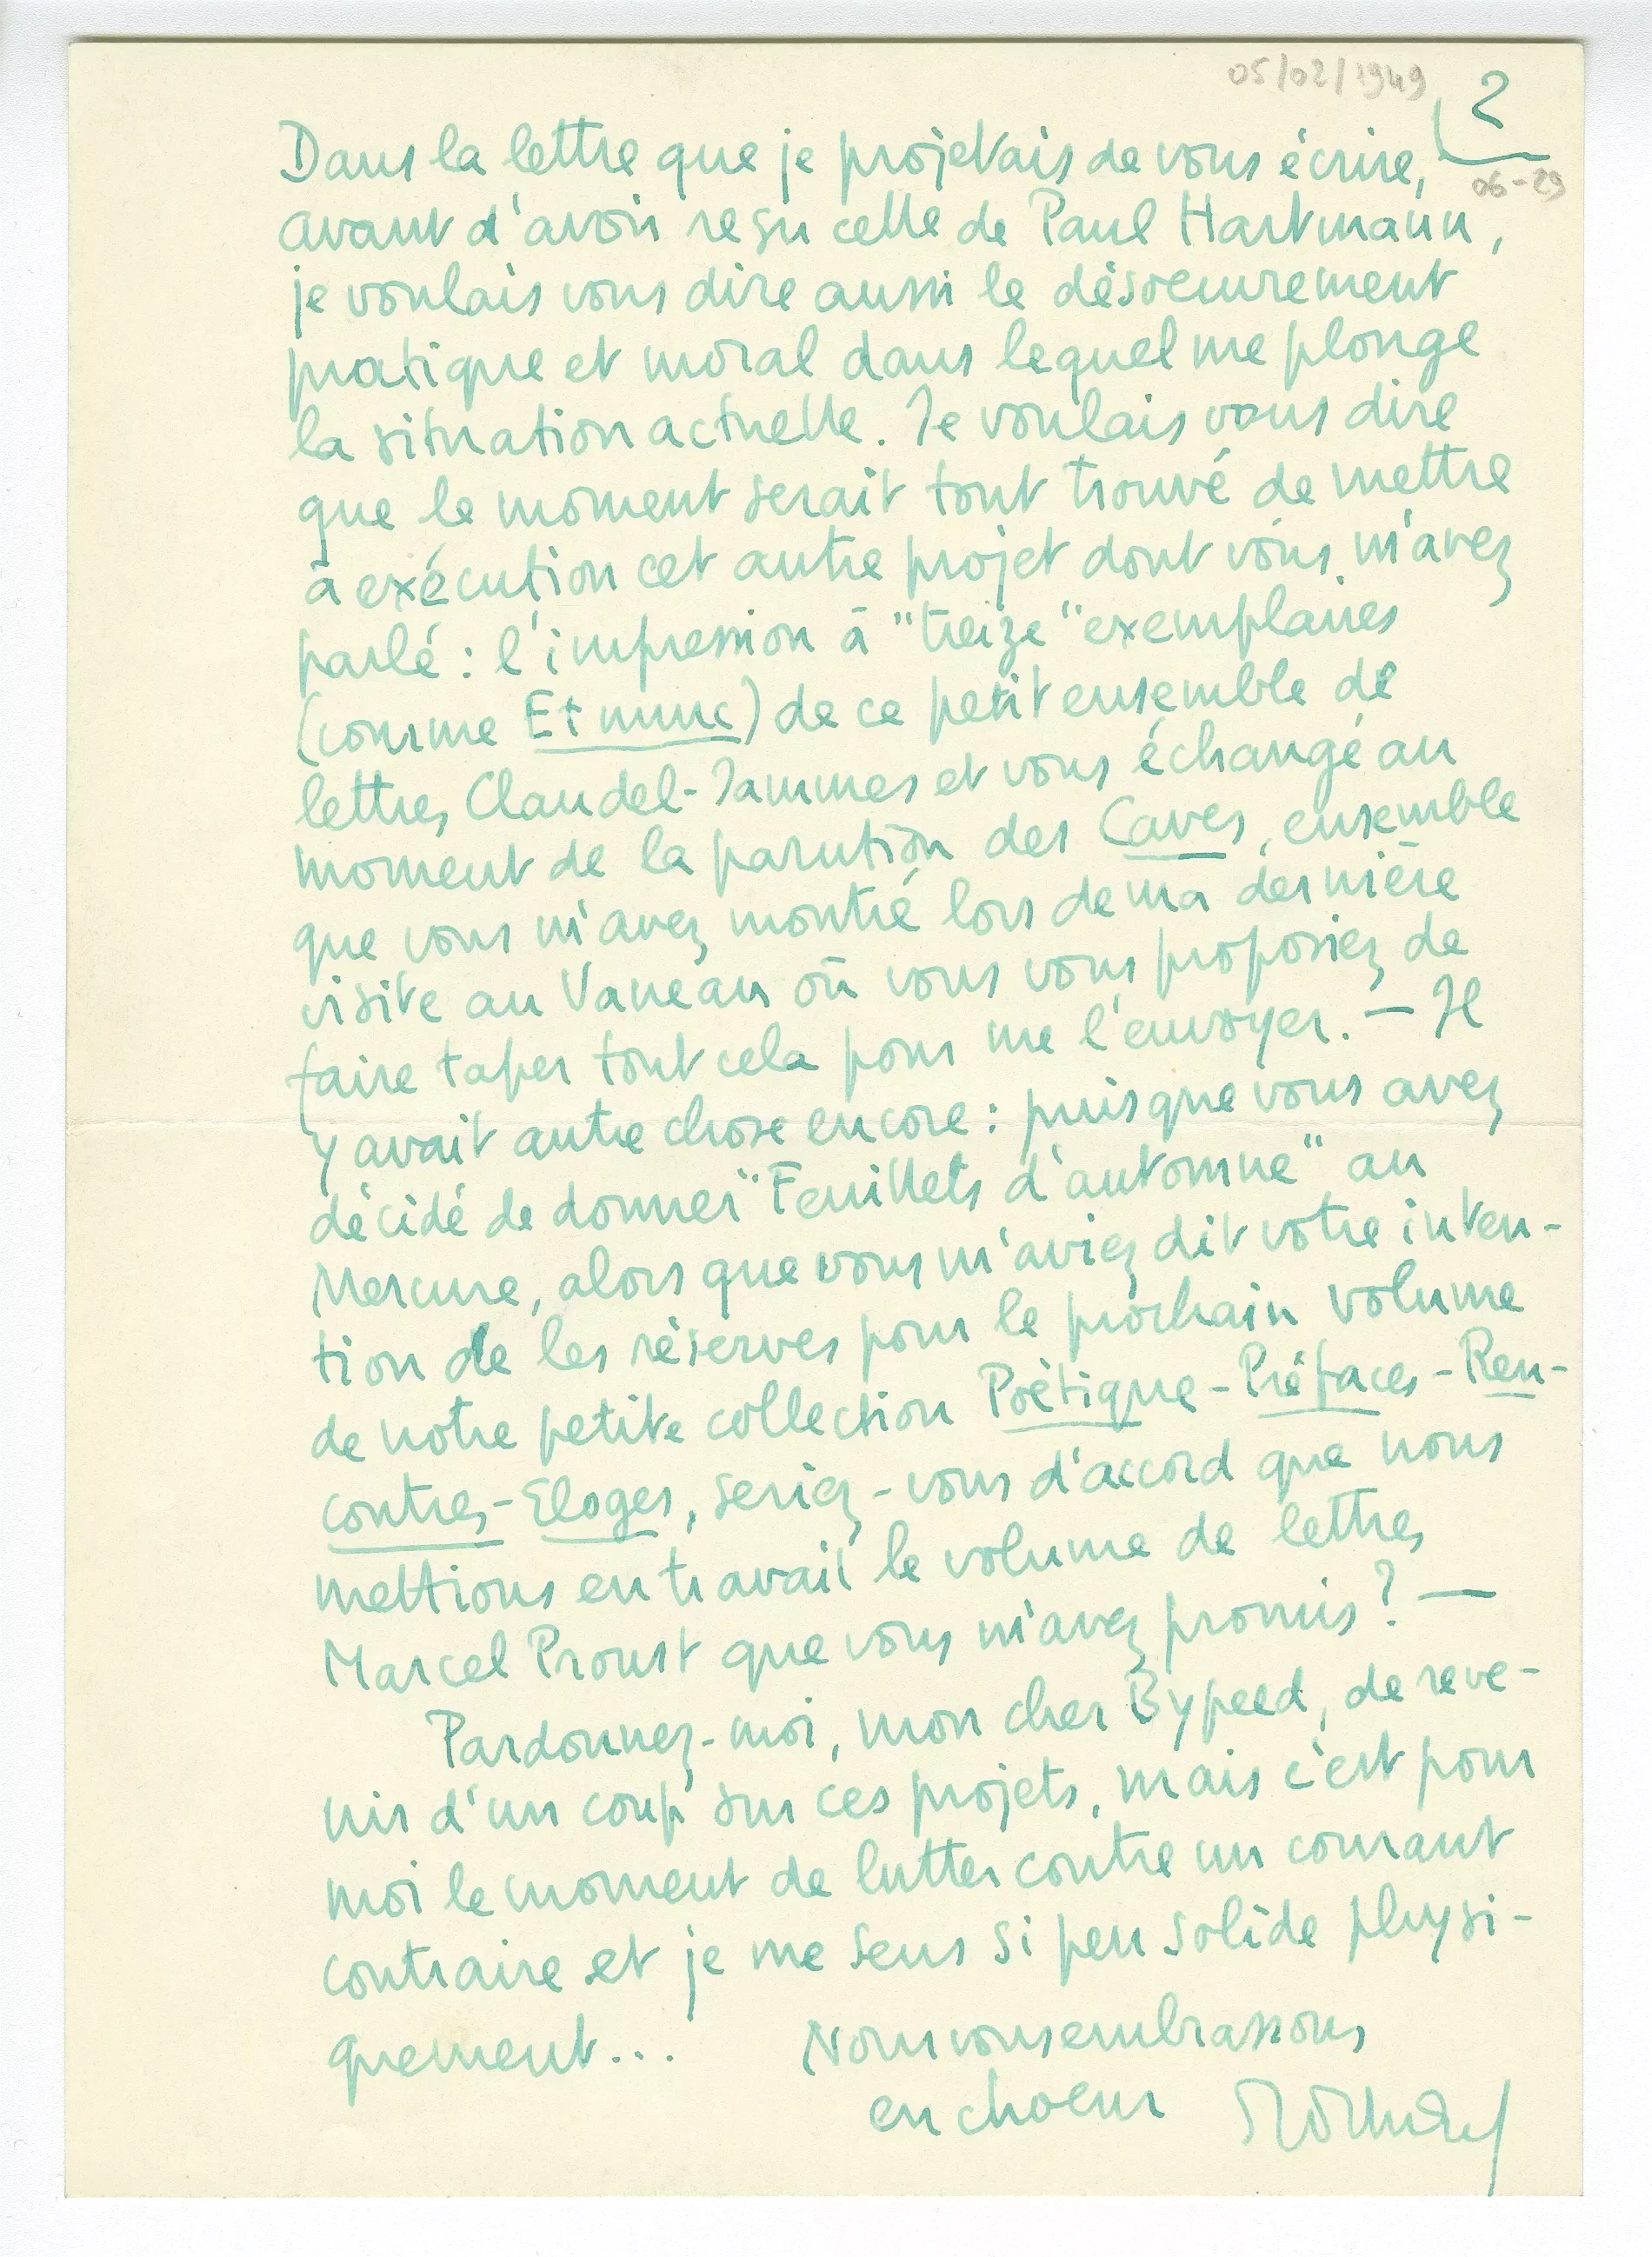 05/02/1949
2
06-29
Dans la lettre que je projetais de vous écrire,
avant d'avoir reçu celle de Paul Hartmann,
je voulais vous dire aussi le désoeuvrement
pratique et moral dans lequel me plonge
la situation actuelle. Je voulais vous dire
que le moment serait tout trouvé de mettre
à exécution cet autre projet dont vous m'avez
parlé : l'impression à "treize" exemplaires
(comme Et nunc) de ce petit ensemble de
lettres Claudel-Jammes et vous échangé au
moment de la parution des Caves, ensemble
que vous m'avez montré lors de ma dernière
visite au Vaneau où vous vous proposiez de
faire taper tout cela pour me l'envoyer. — Il
y avait autre chose encore : puisque vous avez
décidé de donner "Feuillets d'automne" au
Mercure, alors que vous m'aviez dit votre inten-
tion de les réserver pour le prochain volume
de notre petite collection Poétique - Préfaces - Ren-
contres - Eloges, seriez-vous d'accord que nous
mettions en travail le volume de lettres
Marcel Proust que vous m'avez promis ? —
Pardonnez-moi, mon cher Bypeed, de reve-
nir d'un coup sur ces projets, mais c'est pour
moi le moment de lutter contre un courant
contraire et je me sens si peu solide physi-
quement... Nous vous embrassons
en choeur